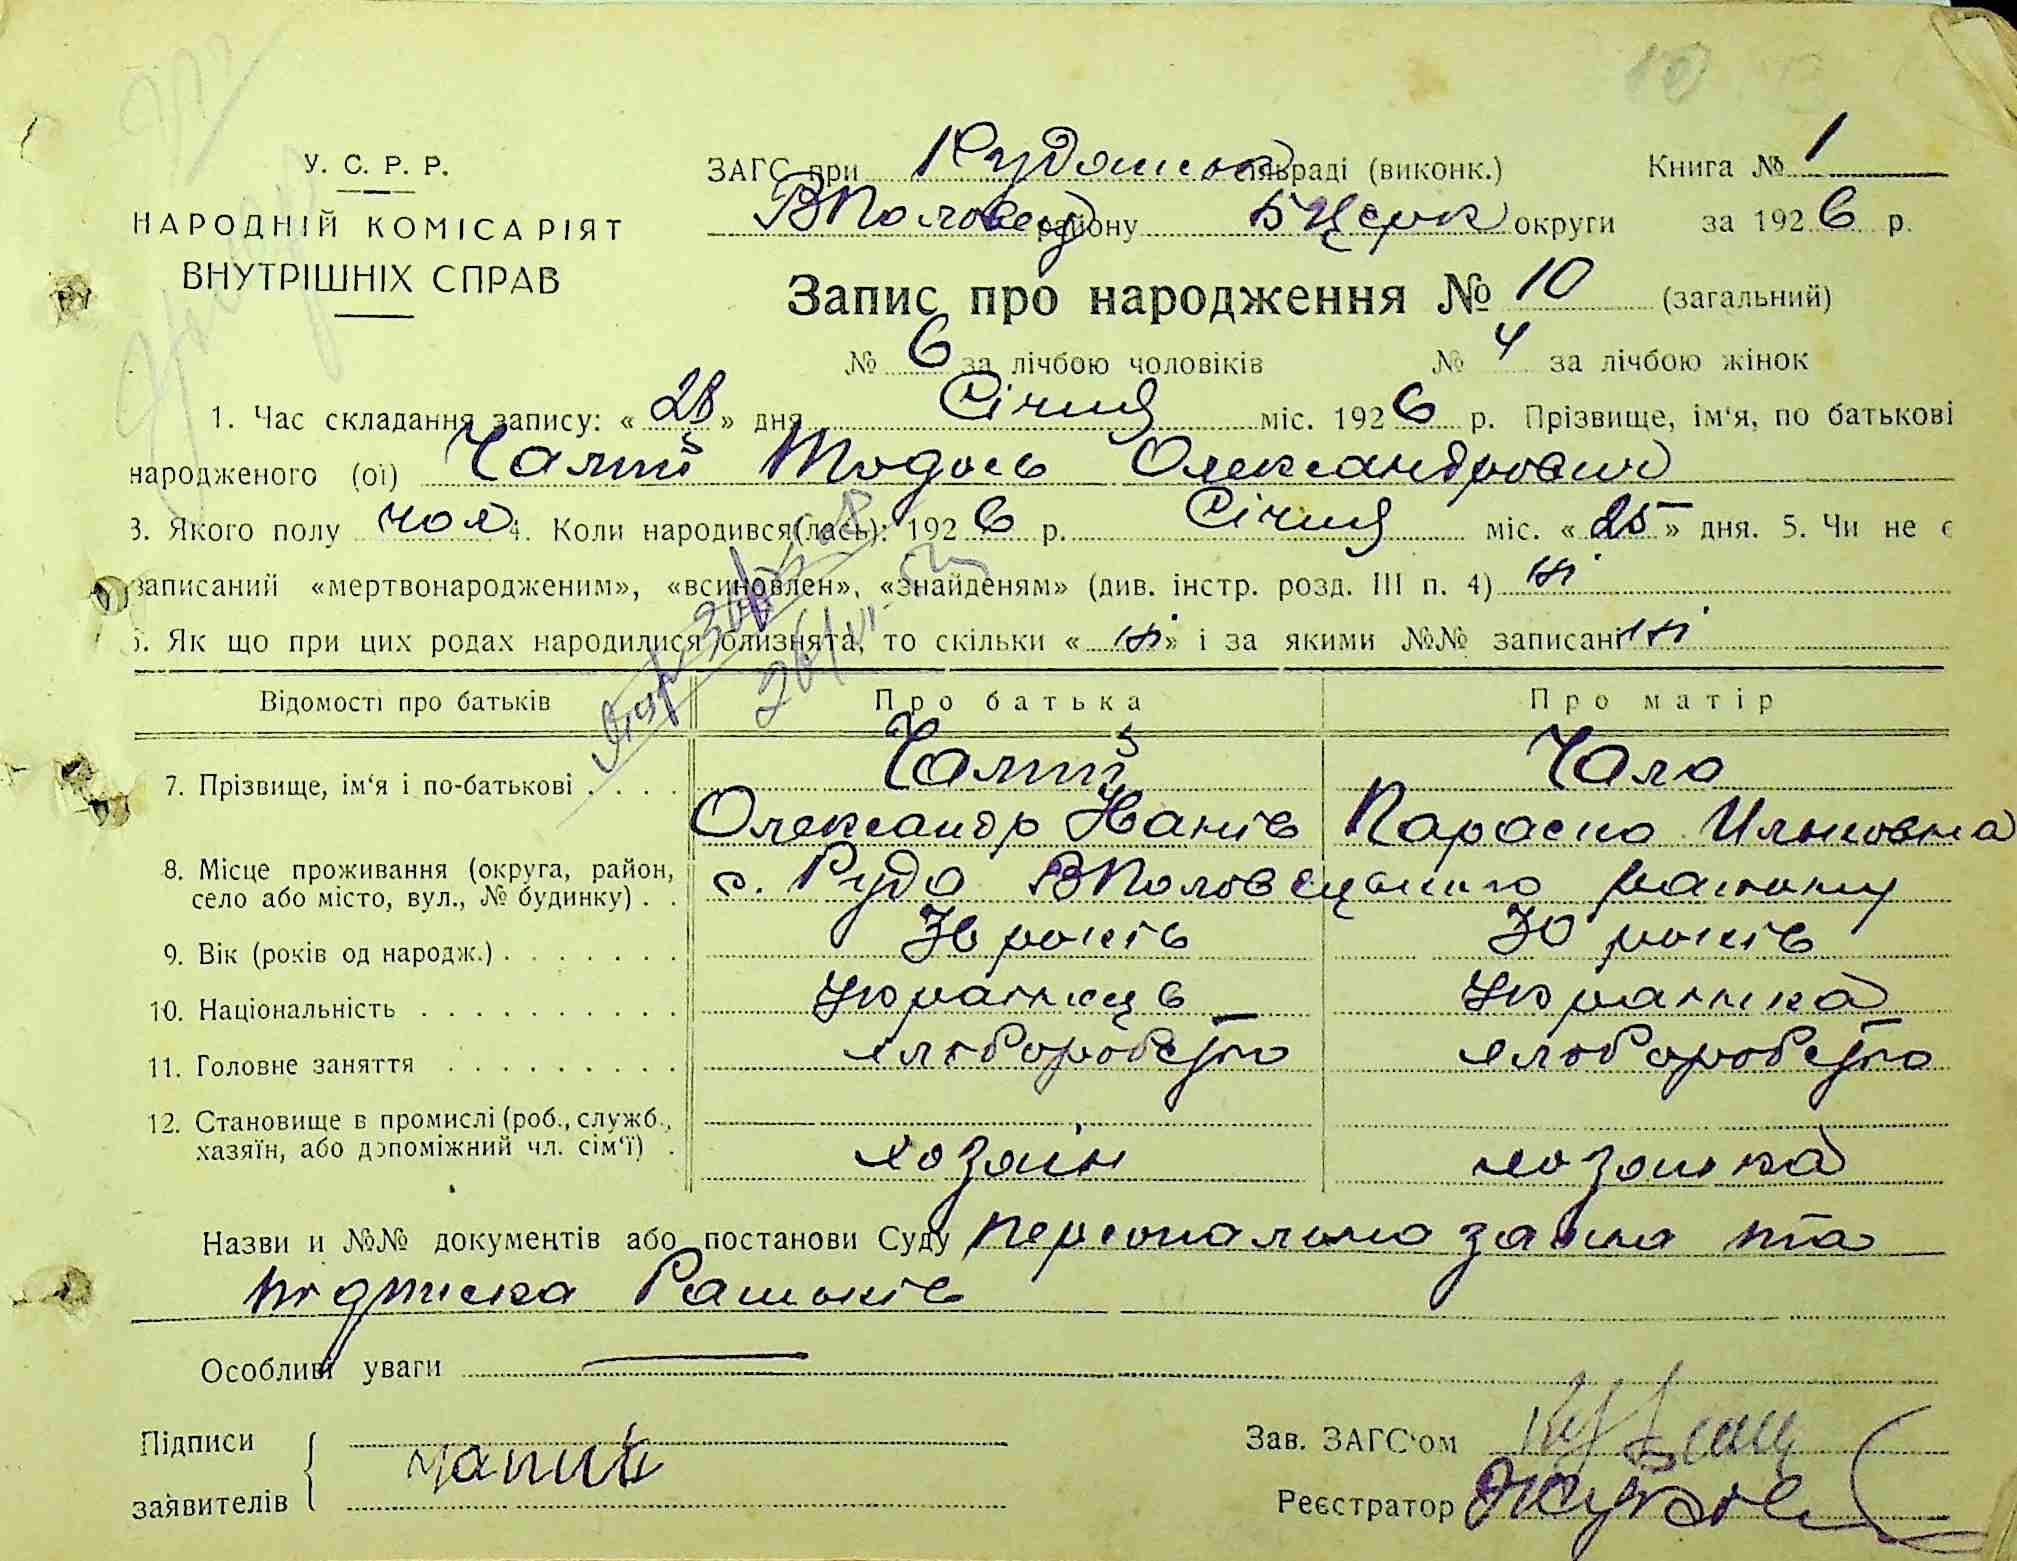 У. С. Р. Р.
НАРОДНІЙ КОМІСАРІЯТ
ВНУТРІШНІХ СПРАВ
ЗАГС при Рудянськ сільраді (виконк.) Книга № 1
ВПоловец району БЦерк округи за 1926 р.
Запис про народження № 10 (загальний)
№ 6 за лічбою чоловіків № 4 за лічбою жінок
1. Час складання запису: «28» дня Січня міс. 1926 р. Прізвище, ім'я, по батькові
народженого (ої) Чалий Тодось Олександрович
3. Якого полу чол 4. Коли народився(лась): 1926 р. Січня міс. «25» дня. 5. Чи не є
записаний «мертвонародженим», «всиновлен», «знайденям» (див. інстр. розд. III п. 4) ні
6. Як що при цих родах народилися близнята, то скільки « ні » і за якими №№ записані ні
Відомості про батьків Про батька Про матір
7. Прізвище, ім'я і по-батькові . . . . Чалий Чала
Олександр Іванів Параска Ильковна
8. Місце проживання (округа, район,
село або місто, вул., № будинку) . . с. Руда ВПоловецького района
9. Вік (років од народж.) . . . . . . . 30 років 30 років
10. Національність . . . . . . . . . . Украінець Украінка
11. Головне заняття . . . . . . . . . хліборобство хліборобство
12. Становище в промислі (роб., служб.,
хазяїн, або допоміжний чл. сім'ї) . хозяін хозяйка
Назви и №№ документів або постанови Суду персонально заява та
підписка батьків
Особливі уваги
Підписи
заявителів
чалий
Зав. ЗАГС'ом
Реєстратор